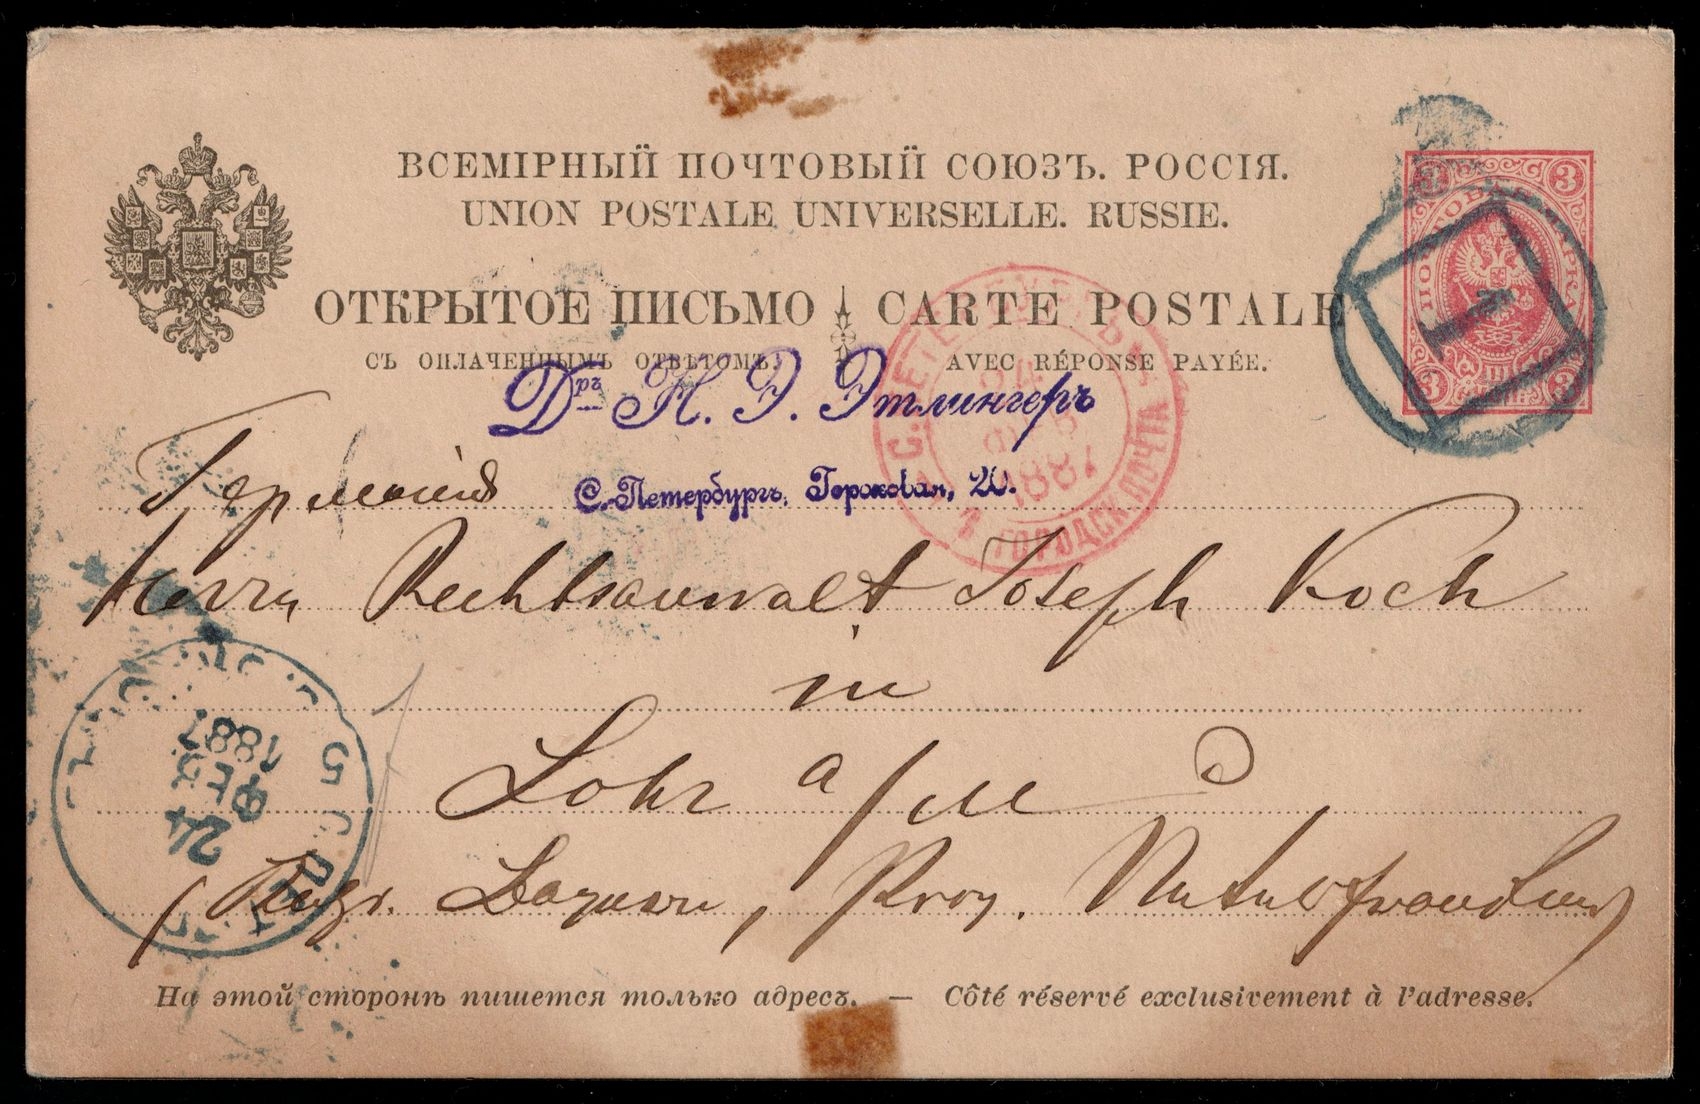 ВСЕМІРНЫЙ ПОЧТОВЫЙ СОЮЗЪ. РОССІЯ.
UNION POSTALE UNIVERSELLE. RUSSIE.
ОТКРЫТОЕ ПИСЬМО CARTE POSTALE
СЪ ОПЛАЧЕННЫМЪ ОТВѢТОМЪ. AVEC RÉPONSE PAYÉE.
3 3
ПОЧТОВ МАРКА
3 3
1
Дръ Н. Э. Этлингеръ
С.-Петербургъ, Гороховая, 20.
С. ПЕТЕРБУРГЪ
24
ФЕВ
1887
1 ГОРОДСК. ПОЧТА
Германія
Herrn Rechtsanwalt Joseph Koch
in
Lohr a/M
Bayern, Prov. Unterfranken)
5
24
ФЕВ
1887
На этой сторонѣ пишется только адресъ. — Côté réservé exclusivement à l'adresse.